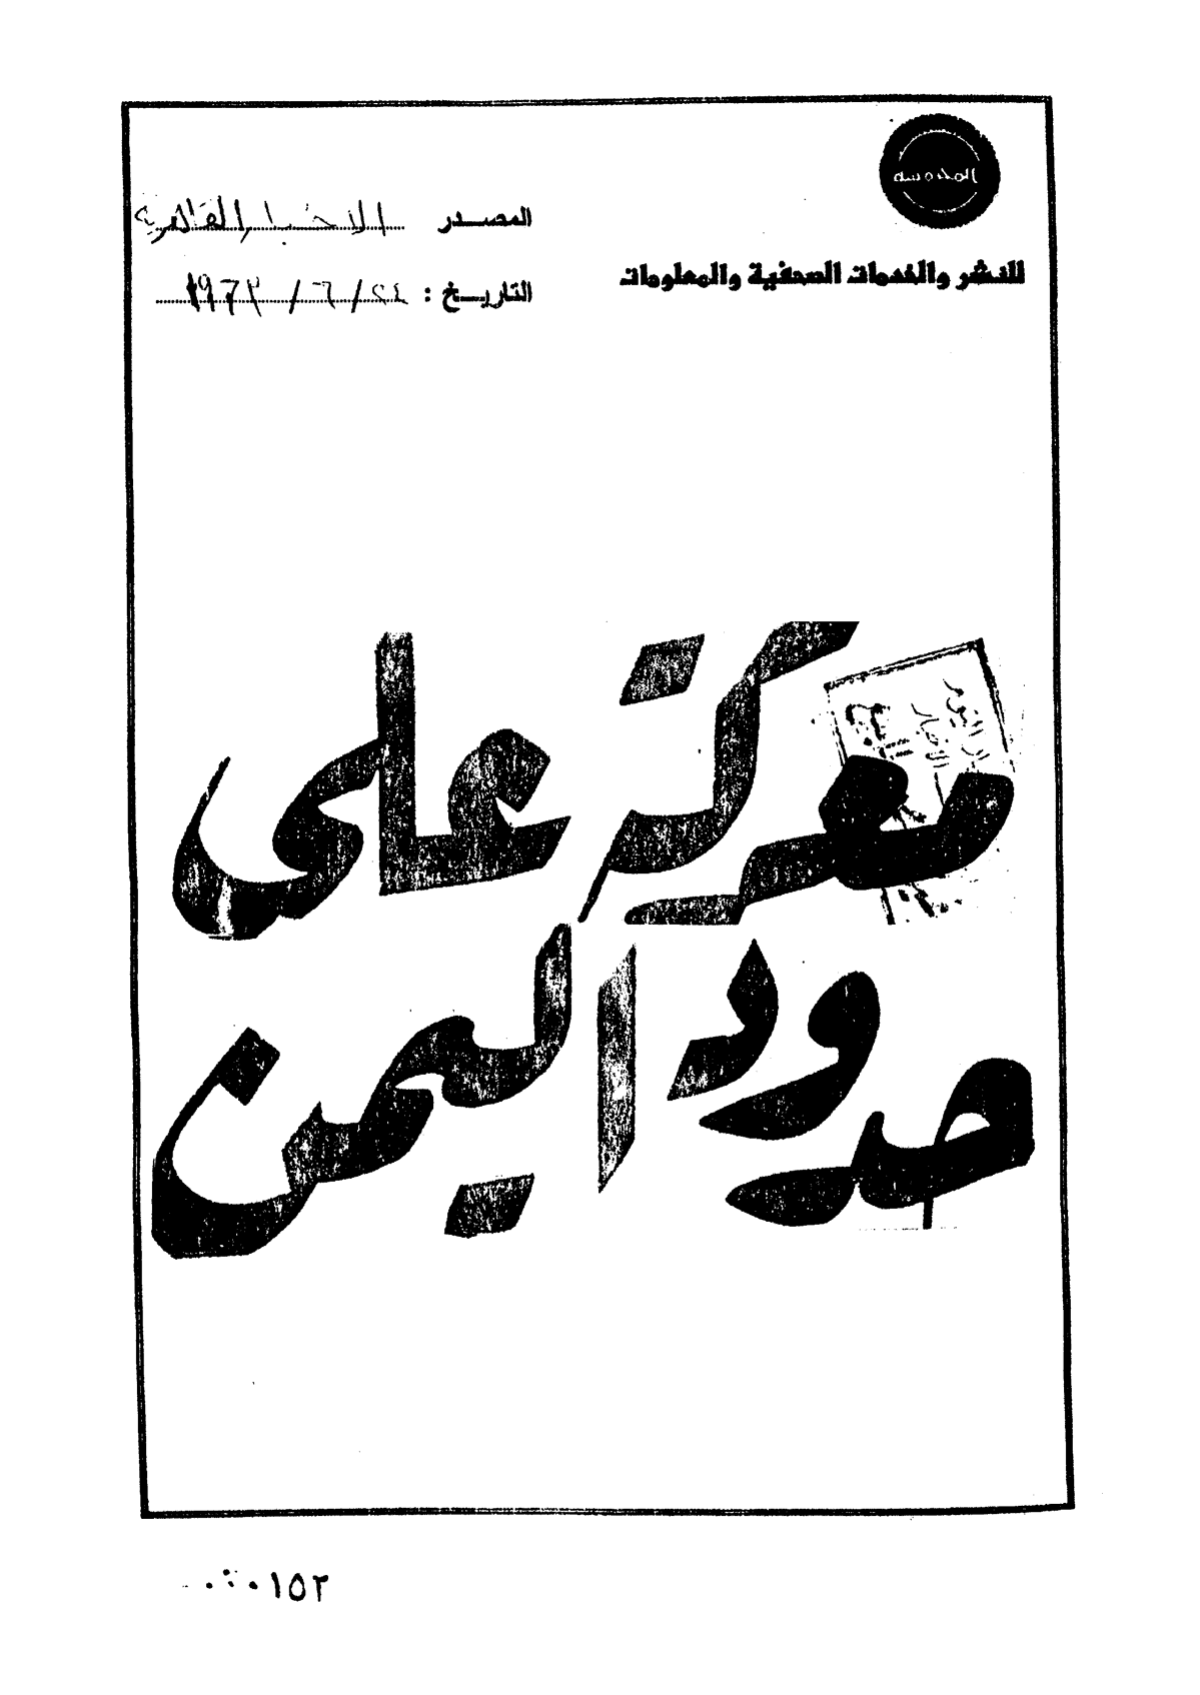 المحروسة
للنشر والخدمات الصحفية والمعلومات
المصدر الاخبار القاهرية
التاريخ : ٢٤ / ٦ / ١٩٦٣
معركة على
حدود اليمن
١٥٢